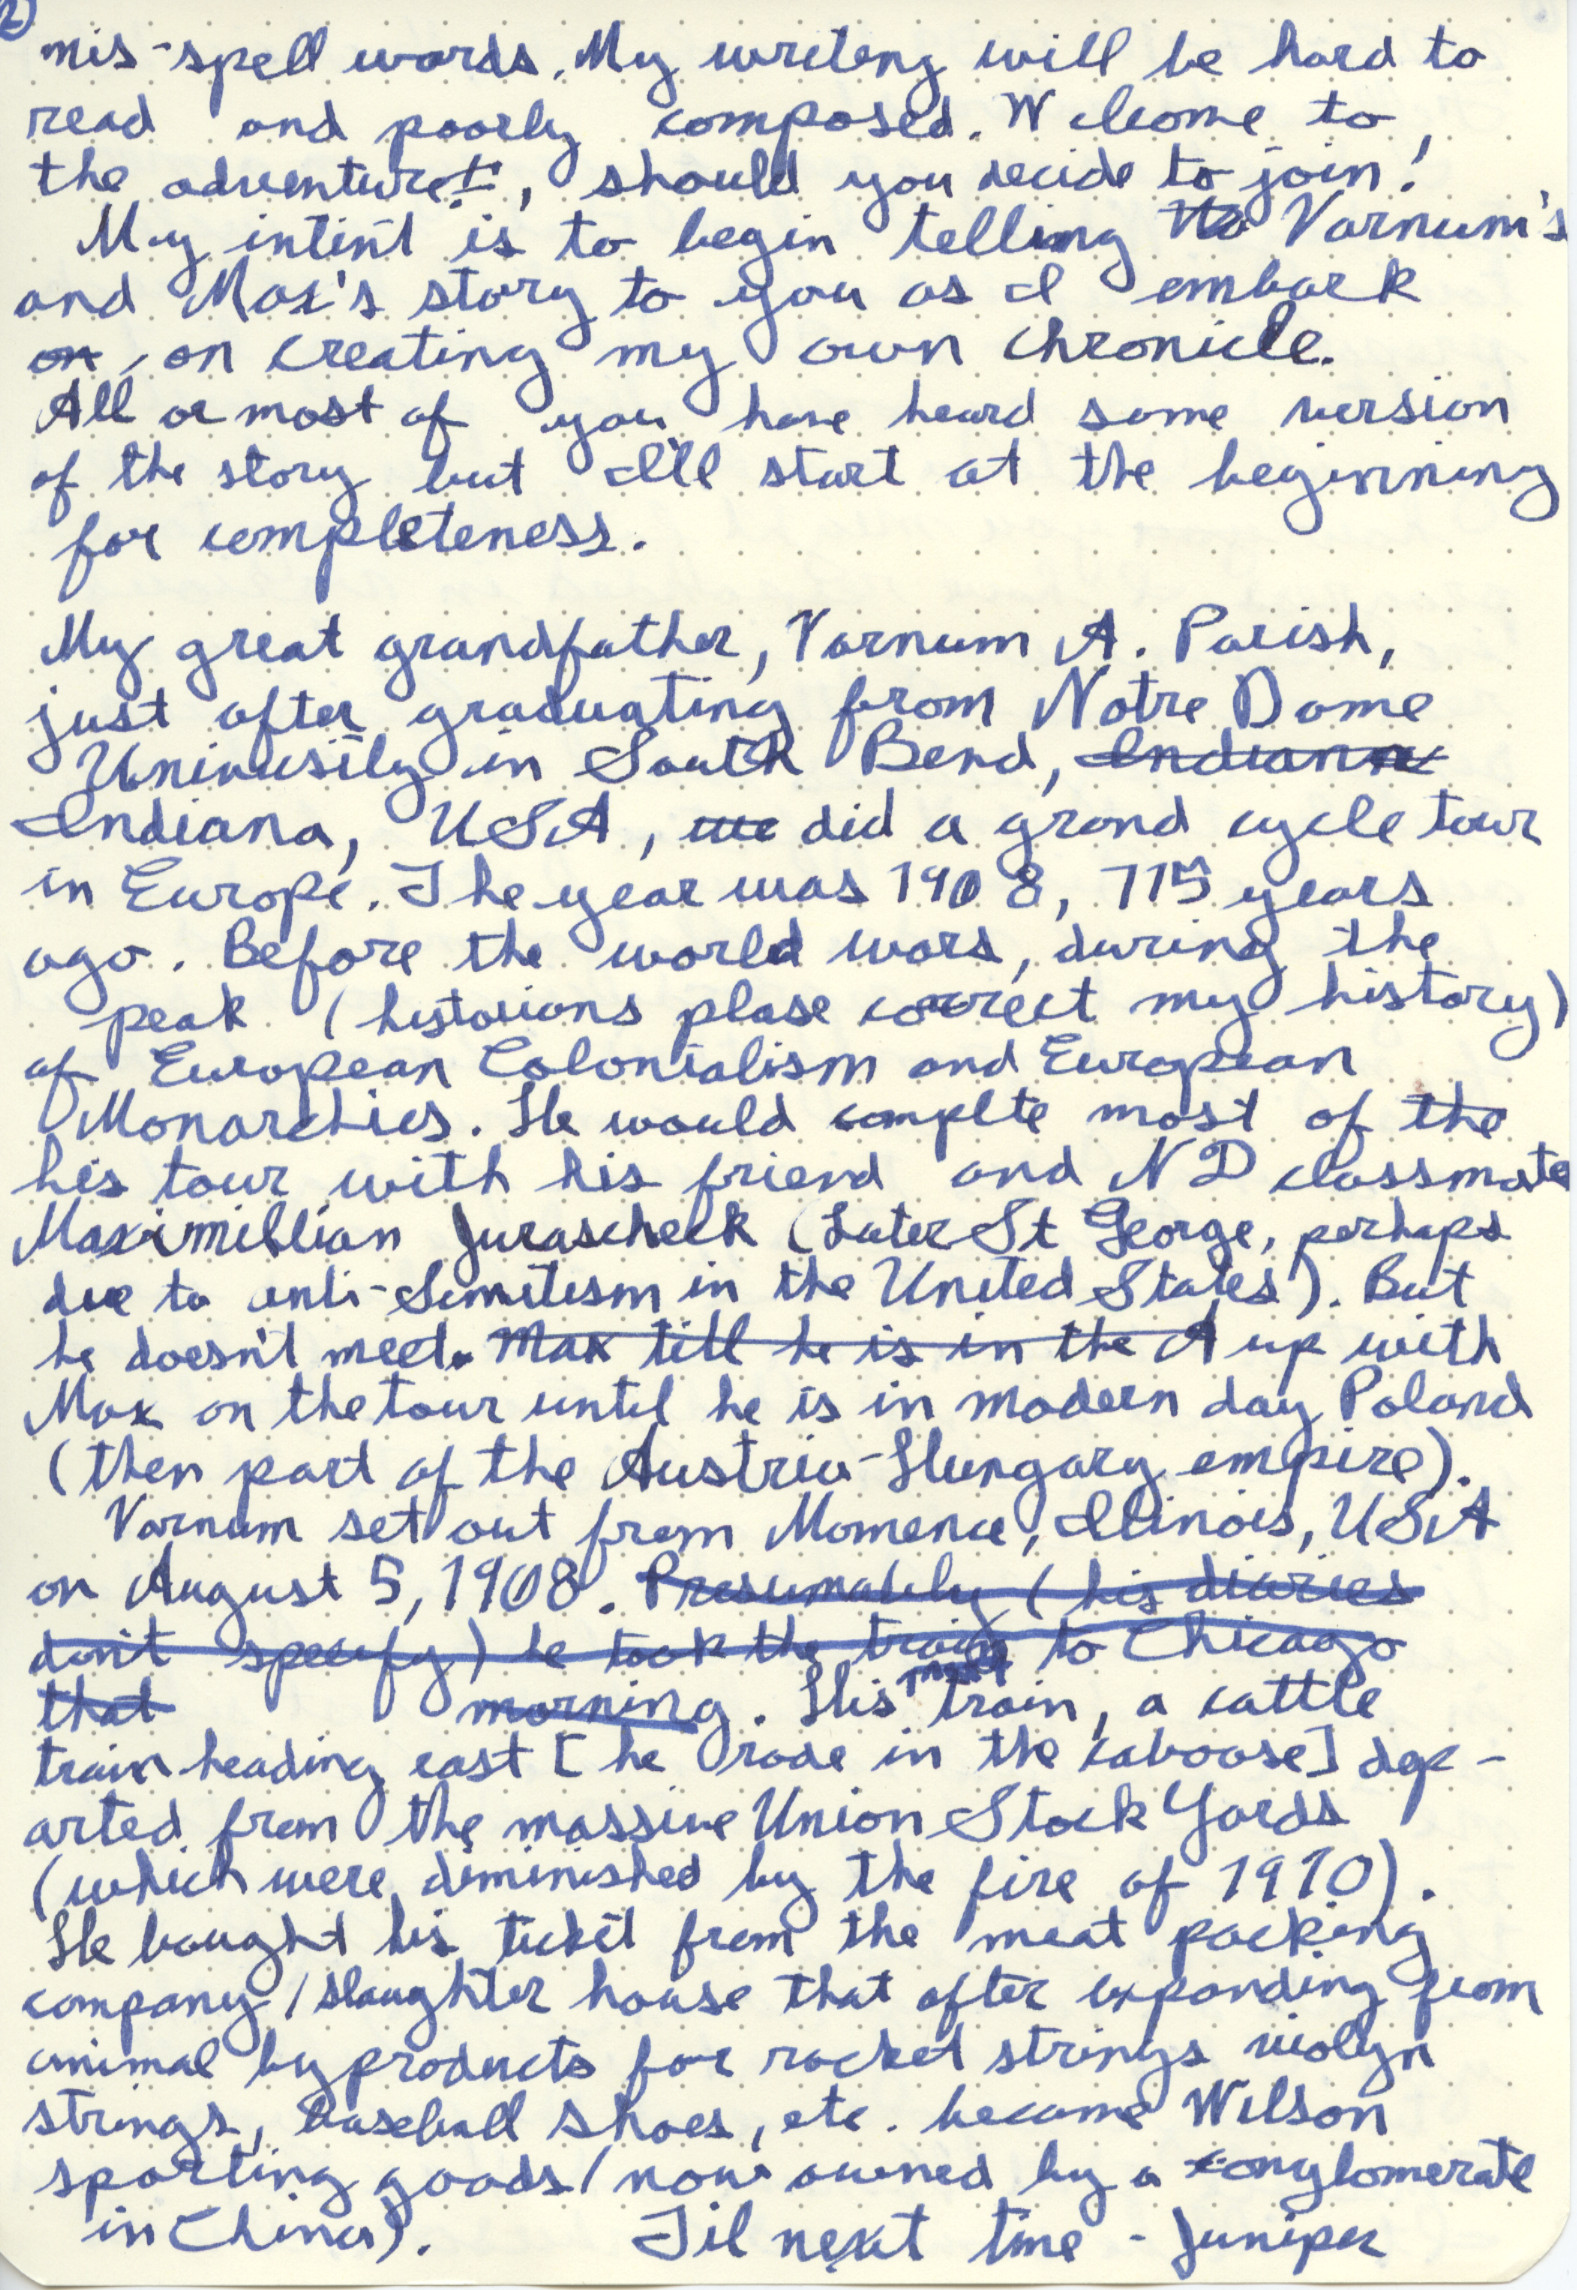 2
mis-spell words. My writeng will be hard to
read and poorly composed. Wlcome to
the adventure!, should you decide to join!
My intint is to begin telling Varnum's
and Max's story to you as I embark
on, on creating my own chronicle.
All or most of you have heard some version
of the story but I'll start at the beginning
for completeness.
My great grandfather, Varnum A. Parish,
just after graduating from Notre Dame
University in South Bend, Indiana
Indiana, USA, did a grand cycle tour
in Europe. The year was 1908, 115 years
ago. Before the world wars, during the
peak (historians plase correct my history)
of European Colonialism and European
Monarchies. He would complte most of the
his tour with his friend and ND classmate
Maximillian Juraschek (Later St George, perhaps
due to anti-Semitism in the United States). But
he doesn't meet Max till he is in the A up with
Max on the tour until he is in modern day Poland
(then part of the Austria-Hungary empire).
Varnum set out from Momence, Illinois, USA
on August 5, 1908. Presumably (his diaries
don't specify) he took the train to Chicago
that morning. His train, a cattle
train heading east [he rode in the caboose] dep-
arted from the massive Union Stock Yards
(which were diminished by the fire of 1910).
He bought his tickit from the meat packing
company/slaughter house that after expanding from
animal byproducts for racket strings violyn
strings, baseball shoes, etc. became Wilson
sporting goods (now owned by a conglomerate
in China). Til next time - Juniper